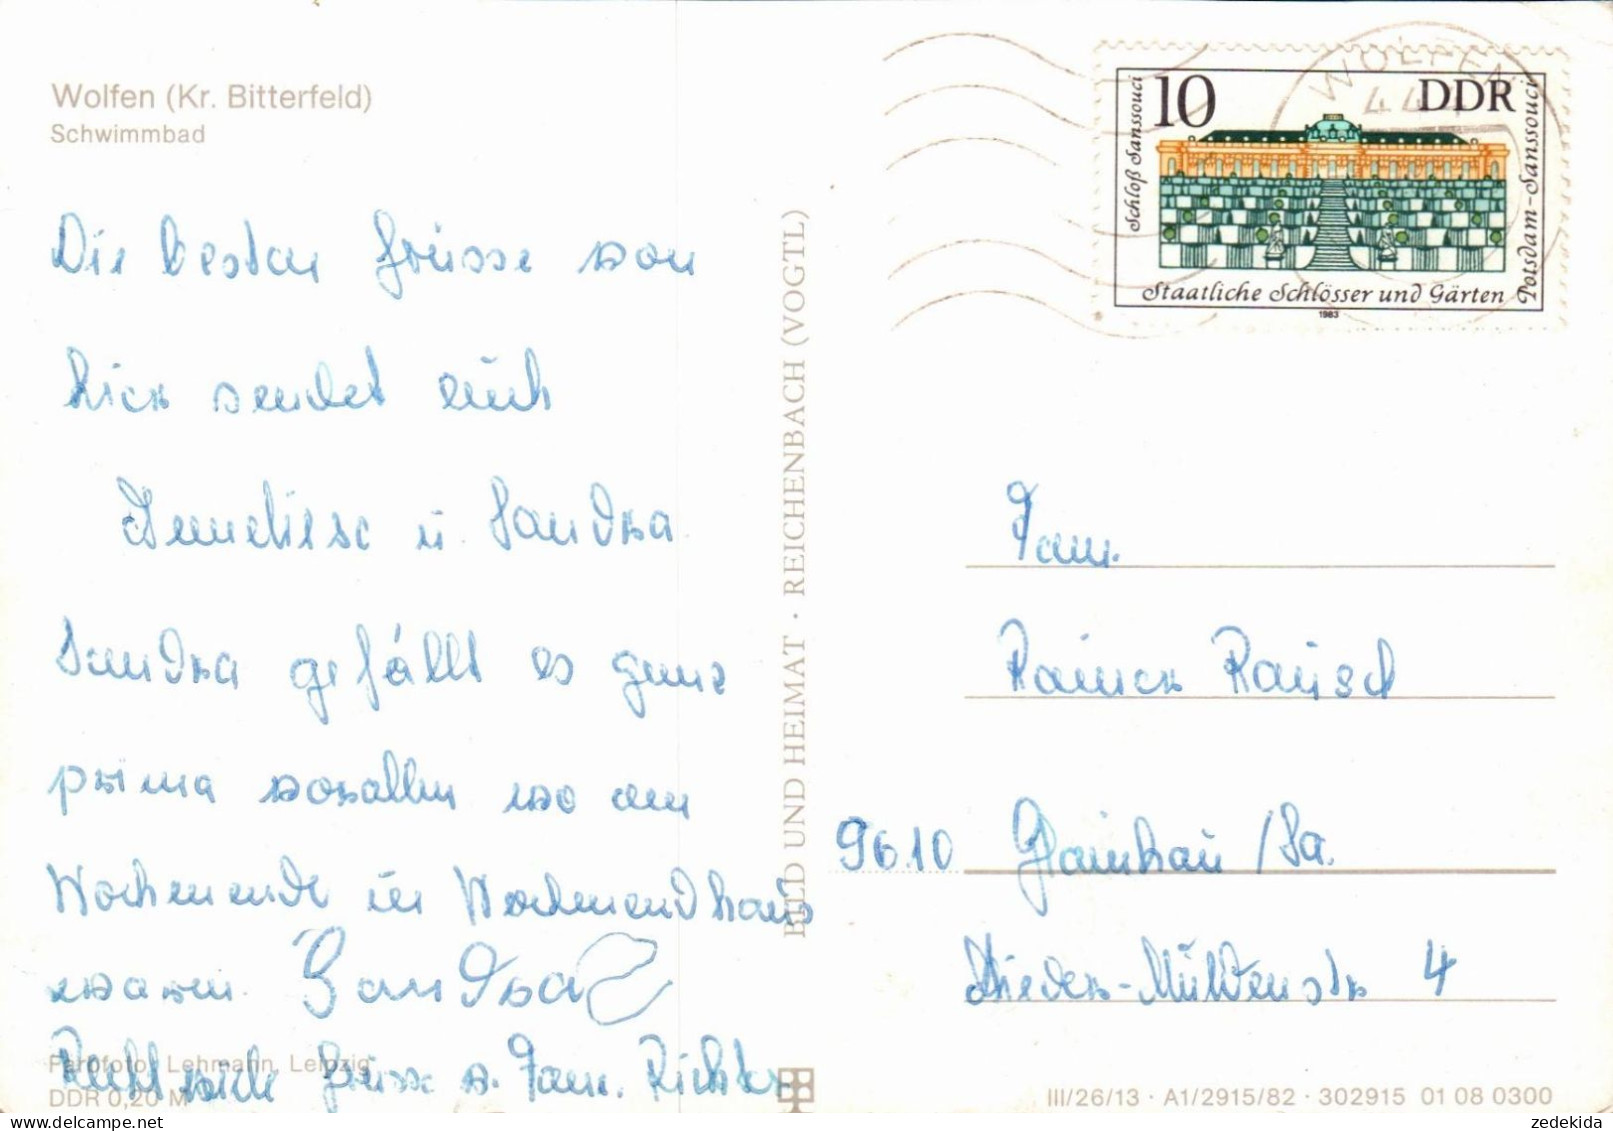 Wolfen (Kr. Bitterfeld)
Schwimmbad
Die besten Grüsse von
hier sendet euch
Anneliese u. Sandra
Sandra gefällt es ganz
prima vorallen wo am
Wochenende im Wochenendhaus
waren. Sandra
Recht viele Grüsse v. Fam. Richter
Farbfoto: Lehmann, Leipzig
DDR 0,20 M
BILD UND HEIMAT · REICHENBACH (VOGTL)
WOLFEN
10
DDR
Schloß Sanssouci
Potsdam-Sanssouci
Staatliche Schlösser und Gärten
1983
Fam.
Rainer Rausch
9610 Glauchau / Sa.
Nieder-Mülsenstr 4
III/26/13 · A1/2915/82 · 302915 01 08 0300
zedekida